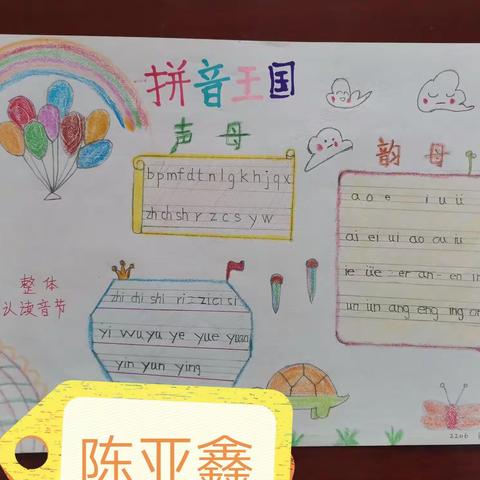 拼音王国
声母
bpmfdtnlgkhjqx
zh ch sh r z c s y w
韵母
a o e i u ü
ai ei ui ao ou iu
ie üe er an en in
un ün ang eng ing
整体
认读音节
zhi chi shi ri zi ci si
yi wu yu ye yue yuan
yin yun ying
陈亚鑫